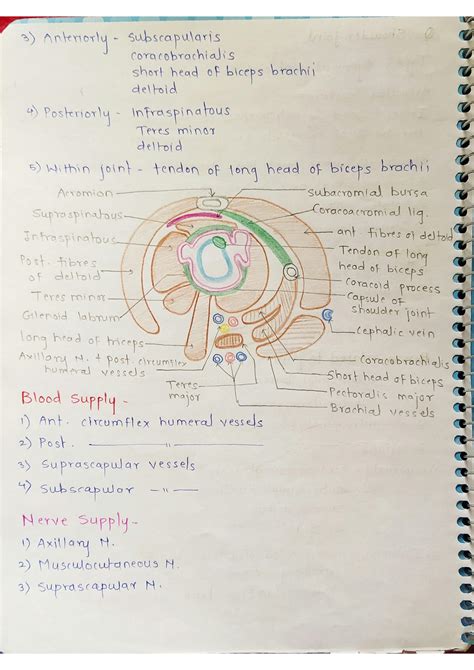 3) Anteriorly - Subscapularis
coracobrachialis
short head of biceps brachii
deltoid
4) Posteriorly - Infraspinatous
Teres minor
deltoid
5) Within joint - tendon of long head of biceps brachii
Acromion
Subacromial bursa
Supraspinatous
Coracoacromial lig.
Infraspinatous
ant. fibres of deltoid
Post. fibres of deltoid
Tendon of long head of biceps
Teres minor
Coracoid process
Glenoid labrum
Capsule of shoulder joint
long head of triceps
Cephalic vein
Axillary N. + post. circumflex humeral vessels
Coracobrachialis
Short head of biceps
Teres major
Pectoralis major
Brachial vessels
Blood Supply -
1) Ant. circumflex humeral vessels
2) Post. —— 〃 ——
3) Suprascapular vessels
4) Subscapular — 〃 —
Nerve Supply -
1) Axillary N.
2) Musculocutaneous N.
3) Suprascapular N.